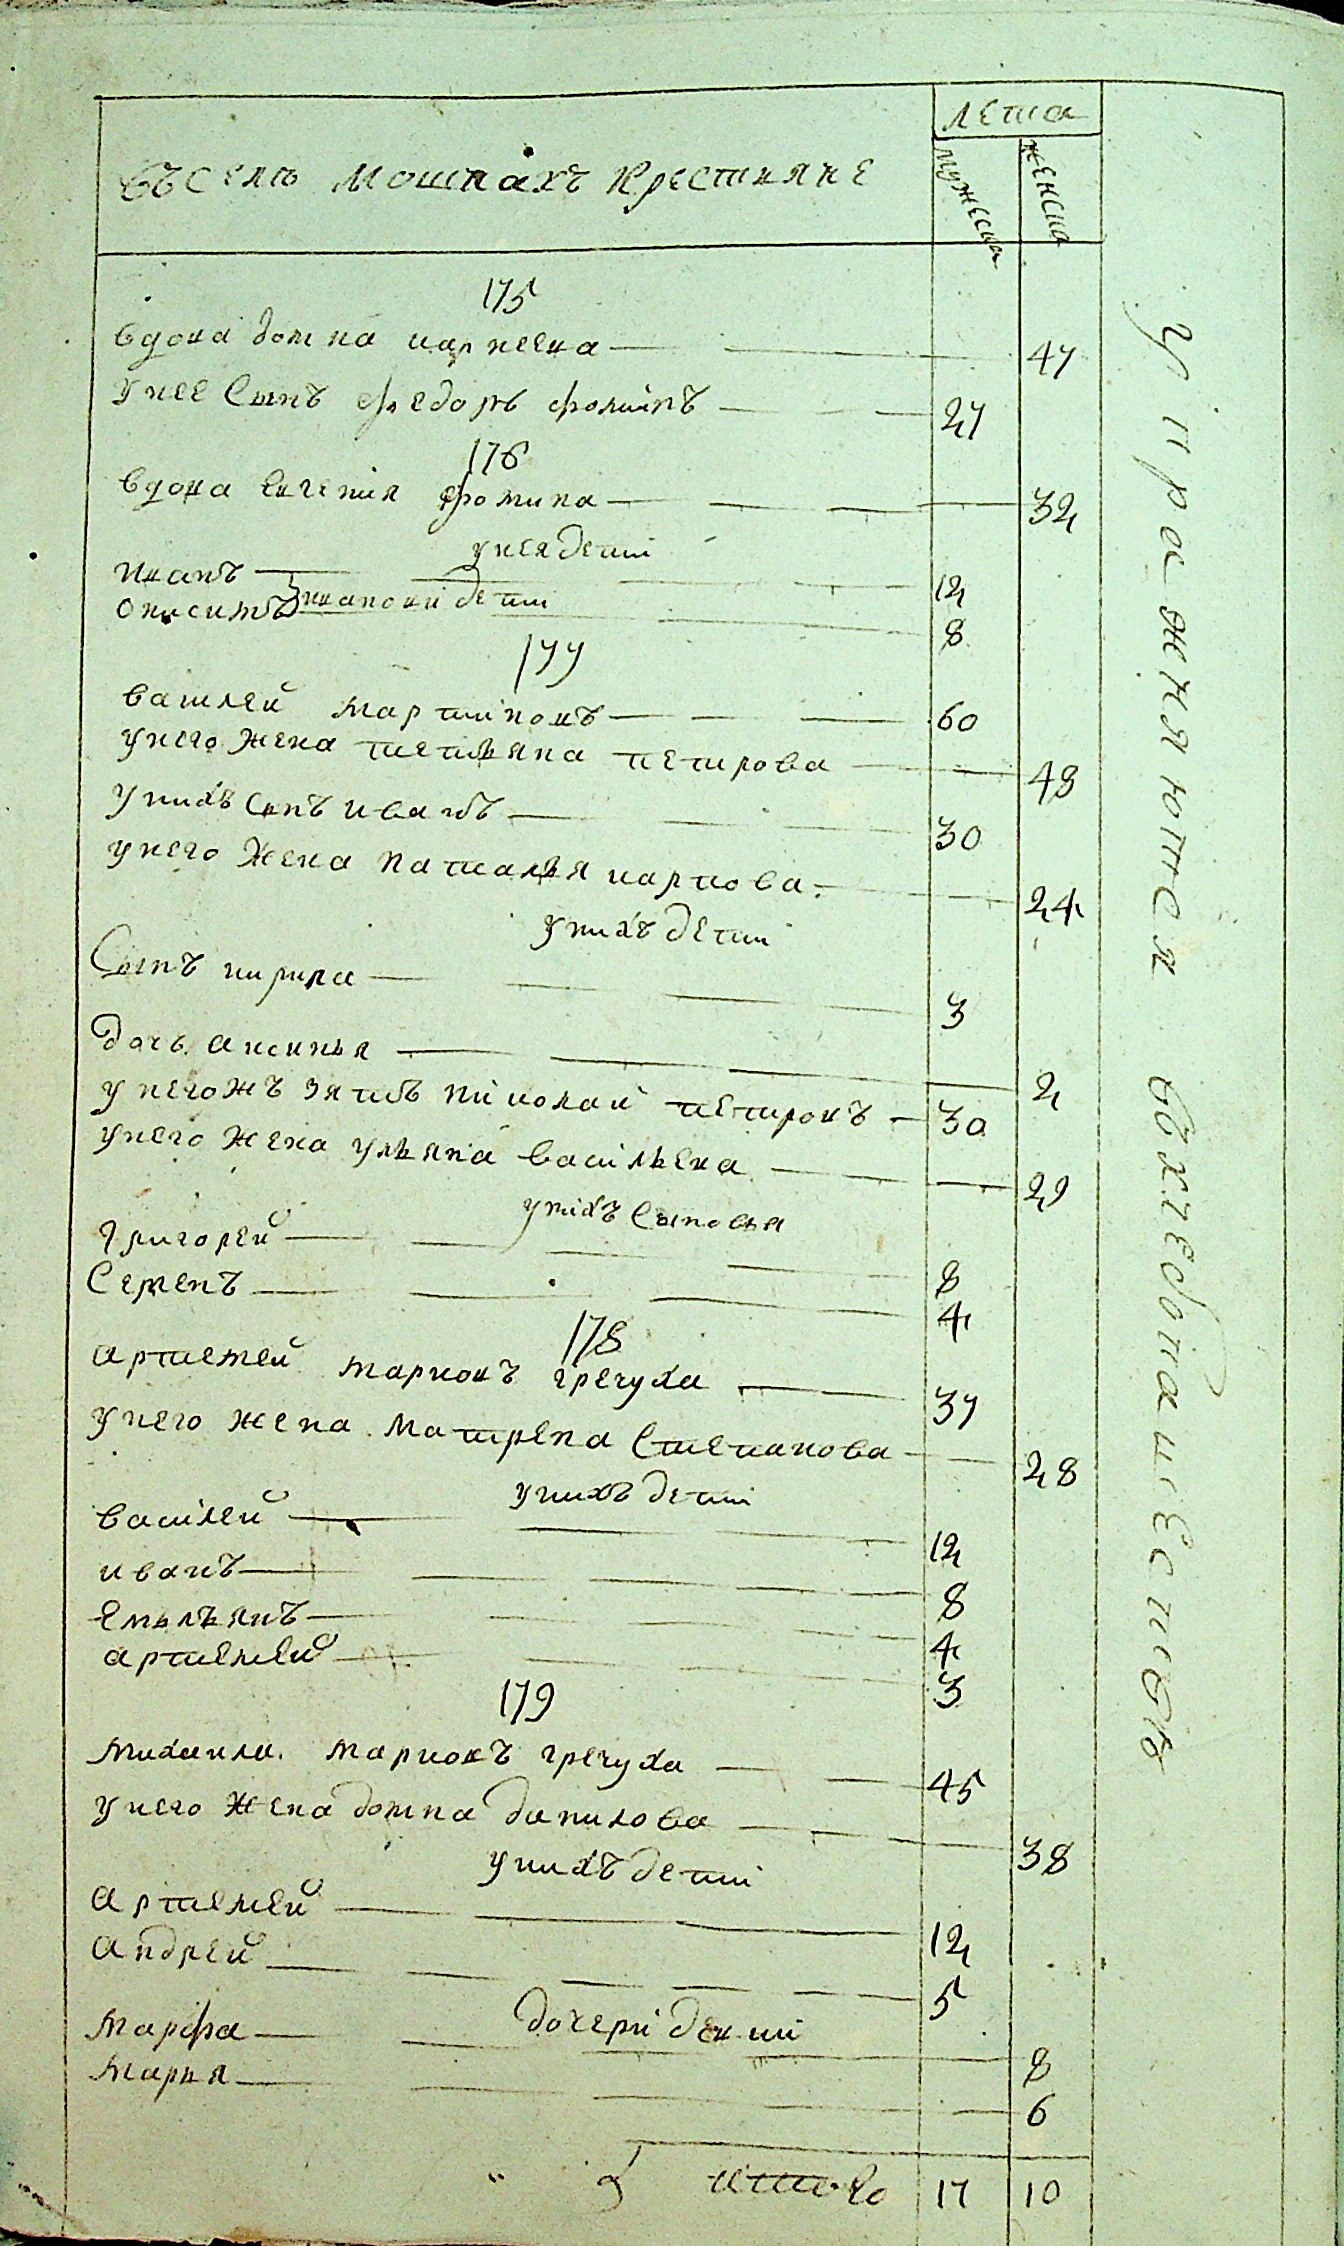 лета
въ селѣ мошнахъ крестьяне
мужеска
женска
175
вдова домна карпеева 47
у нее сынъ федоръ фоминъ 27
176
вдова евгения фомина 32
у нея дети
иванъ 12
онисимъ ивановы дети 8
177
василей мартиновъ 60
у него жена татьяна петрова 48
у нихъ сынъ иванъ 30
у него жена наталья карпова 24
у нихъ дети
сынъ кирила 3
дочь аксинья 2
у негожъ зять николай петровъ 30
у него жена ульяна васильева 29
у нихъ сыновья
григорей 8
семенъ 4
178
артемей марковъ гречуха 37
у него жена матрена степанова 28
у нихъ дети
василей 12
иванъ 8
емельянъ 4
артемей 3
179
михаила марковъ гречуха 45
у него жена домна данилова 38
у нихъ дети
артемей 12
андрей 5
дочери девки
марфа 8
марья 6
итого 17 10
упражняются в хлебопашестве